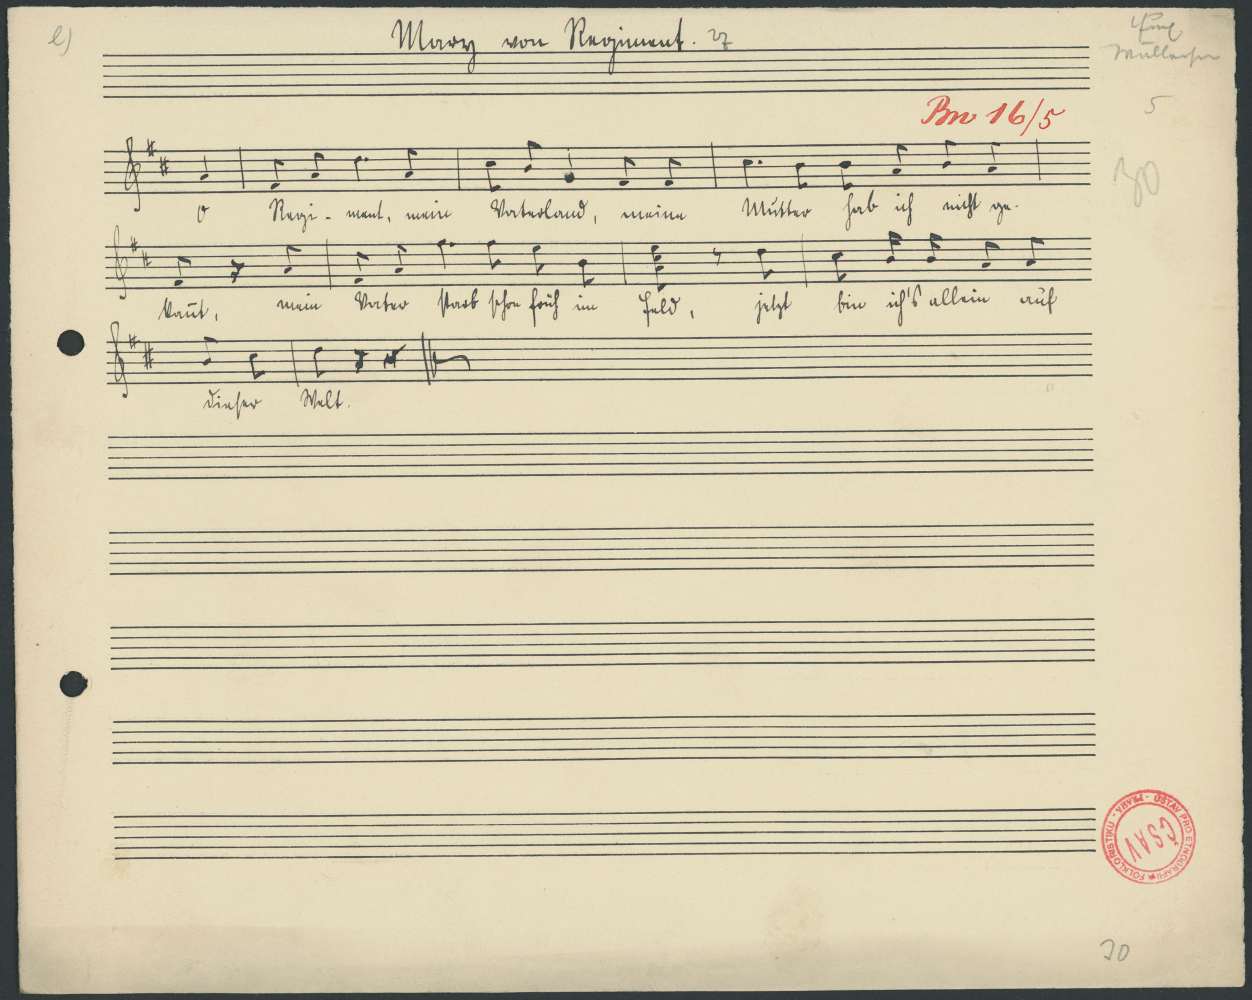 e)
Mary von Regiment. 27
5
Bm 16/5
30
O Regi - ment, mein Vaterland, meine Mutter hab ich nicht ge-
kannt, mein Vater starb schon früh im Feld, jetzt bin ich's allein auf
dieser Welt.
ÚSTAV PRO ETNOGRAFII A FOLKLORISTIKU · PRAHA ·
ČSAV
30